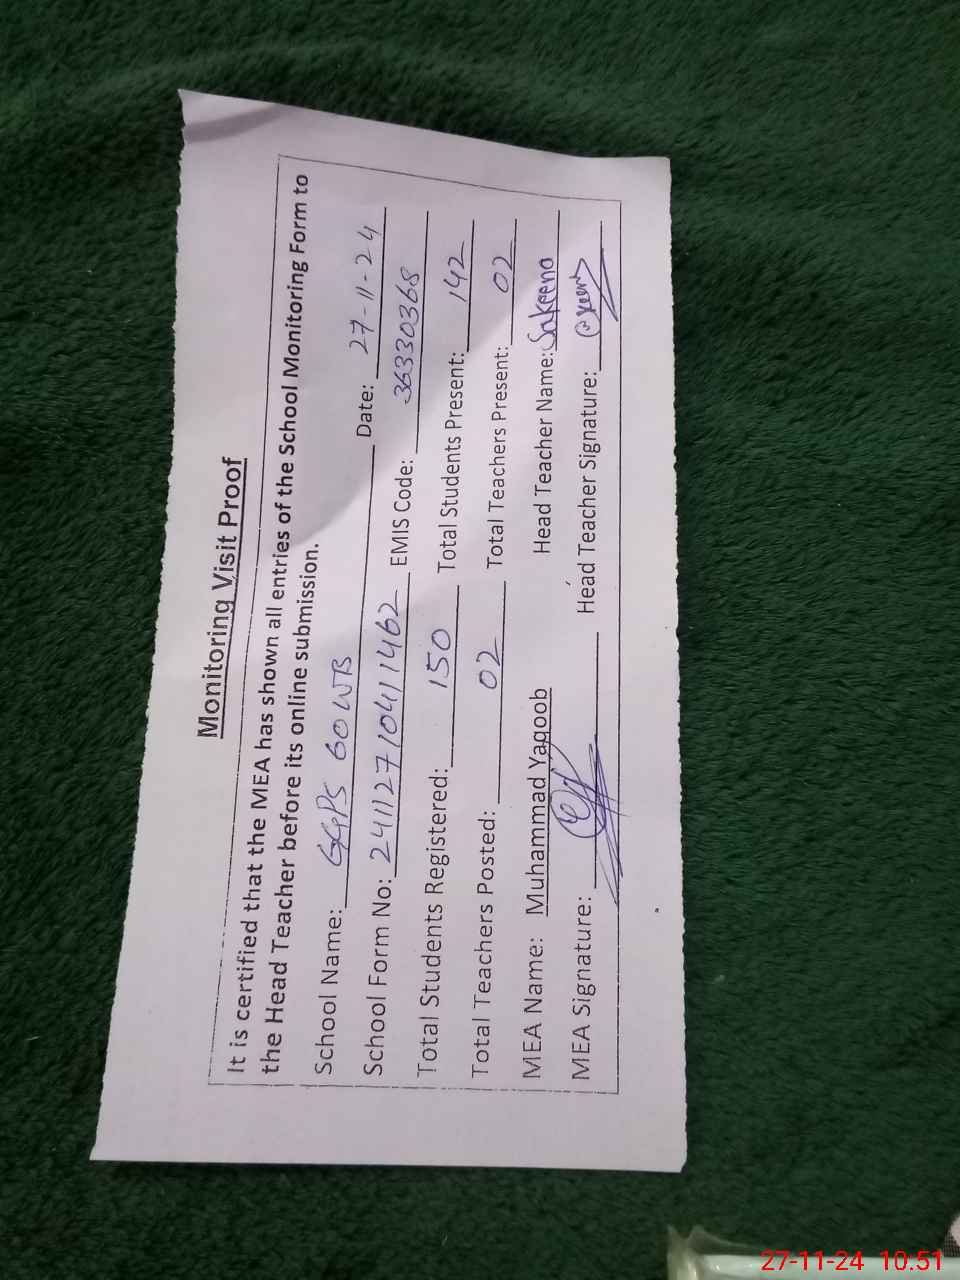 Monitoring Visit Proof
It is certified that the MEA has shown all entries of the School Monitoring Form to
the Head Teacher before its online submission.
School Name: GGPS 60 WB Date: 27-11-24
School Form No: 241127104111462 EMIS Code: 36330368
Total Students Registered: 150 Total Students Present: 142
Total Teachers Posted: 02 Total Teachers Present: 02
MEA Name: Muhammad Yaqoob Head Teacher Name: Sakeena
MEA Signature: Head Teacher Signature:
27-11-24 10:51